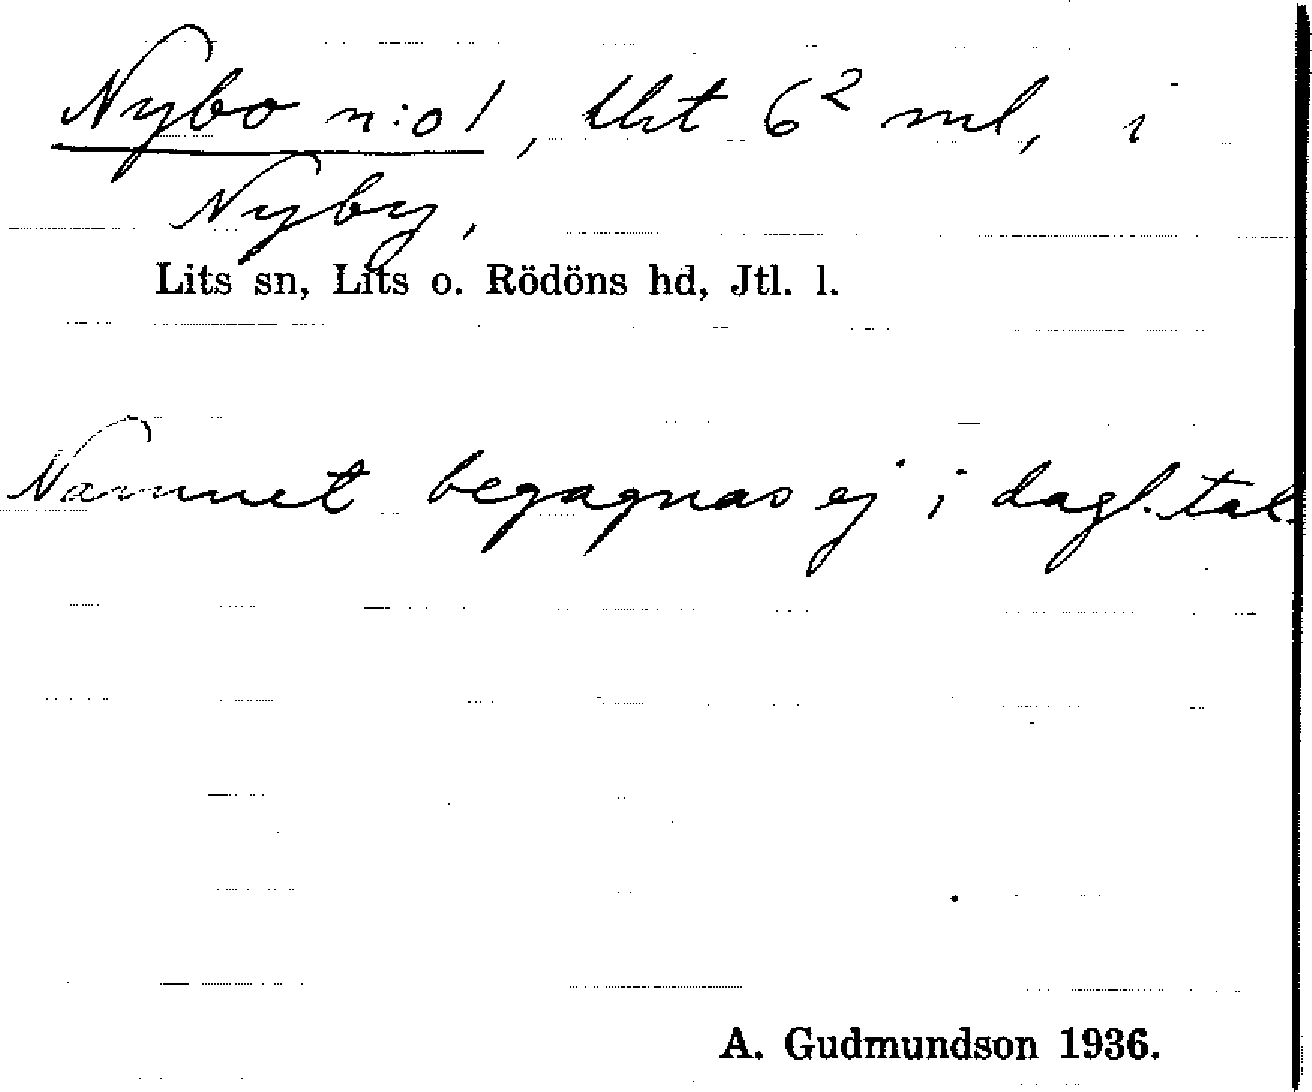 Nybo n:o 1, tht 6² ml, i
Nyby,
Lits sn, Lits o. Rödöns hd, Jtl. l.
Namnet begagnas ej i dagl. tal.
A. Gudmundson 1936.